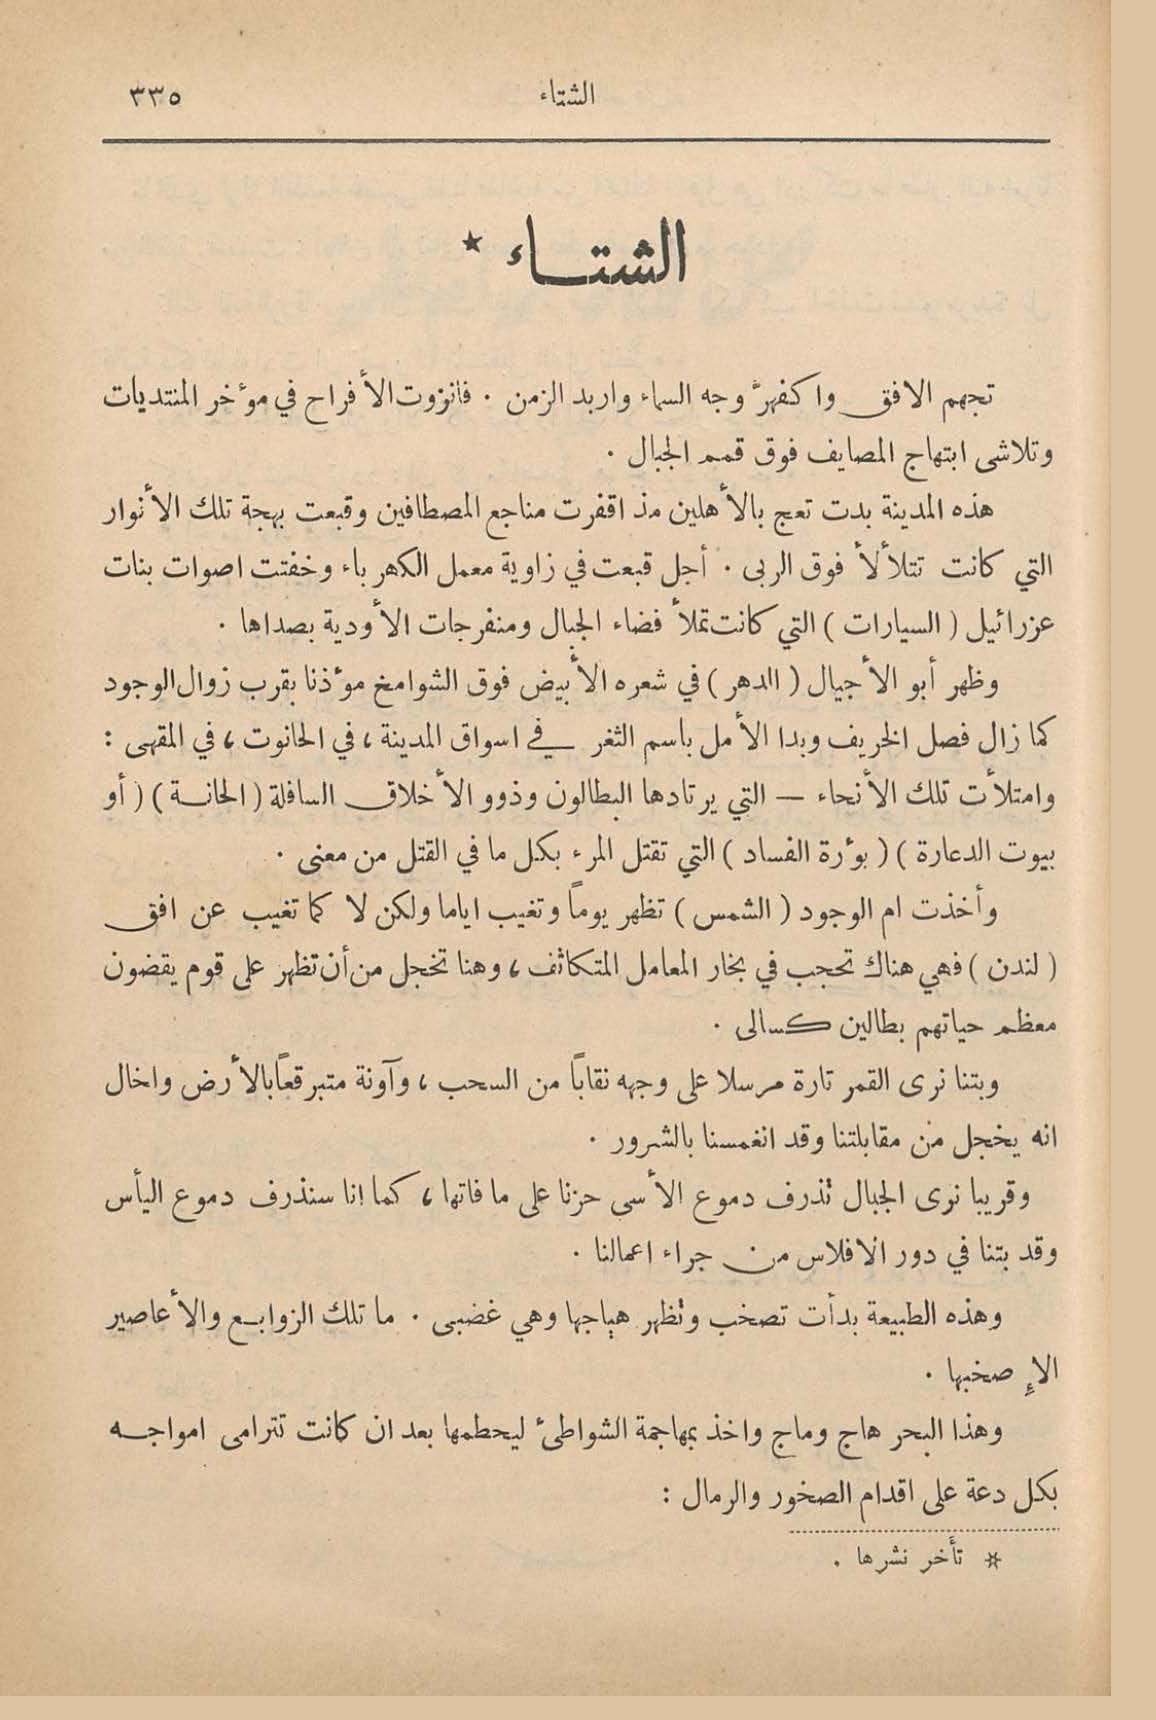 الشتاء ٣٣٥
الشتاء *
تجهم الافق واكفهرَّ وجه السماء واربد الزمن . فانزوت الأفراح في مؤخر المنتديات
وتلاشى ابتهاج المصايف فوق قمم الجبال .
هذه المدينة بدت تعج بالأهلين مذ اقفرت مناجع المصطافين وقبعت بهجة تلك الأنوار
التي كانت تتلألأ فوق الربى . أجل قبعت في زاوية معمل الكهرباء وخفتت اصوات بنات
عزرائيل ( السيارات ) التي كانت تملأ فضاء الجبال ومنفرجات الأودية بصداها .
وظهر أبو الأجيال ( الدهر ) في شعره الأبيض فوق الشوامخ مؤذنا بقرب زوال الوجود
كما زال فصل الخريف وبدا الأمل باسم الثغر في اسواق المدينة ، في الحانوت ، في المقهى :
وامتلأت تلك الأنحاء — التي يرتادها البطالون وذوو الأخلاق السافلة ( الحانة ) ( أو
بيوت الدعارة ) ( بؤرة الفساد ) التي تقتل المرء بكل ما في القتل من معنى .
وأخذت ام الوجود ( الشمس ) تظهر يوماً وتغيب اياما ولكن لا كما تغيب عن افق
( لندن ) فهي هناك تحجب في بخار المعامل المتكاثف ، وهنا تخجل من أن تظهر على قوم يقضون
معظم حياتهم بطالين كسالى .
وبتنا نرى القمر تارة مرسلا على وجهه نقاباً من السحب ، وآونة متبرقعاً بالأرض واخال
انه يخجل من مقابلتنا وقد انغمسنا بالشرور .
وقريبا نرى الجبال تذرف دموع الأسى حزنا على ما فاتها ، كما إنا سنذرف دموع اليأس
وقد بتنا في دور الافلاس من جراء اعمالنا .
وهذه الطبيعة بدأت تصخب وتظهر هياجها وهي غضبى . ما تلك الزوابع والأعاصير
الإ صخبها .
وهذا البحر هاج وماج واخذ بمهاجمة الشواطئ ليحطمها بعد ان كانت تترامى امواجه
بكل دعة على اقدام الصخور والرمال :
* تأخر نشرها .